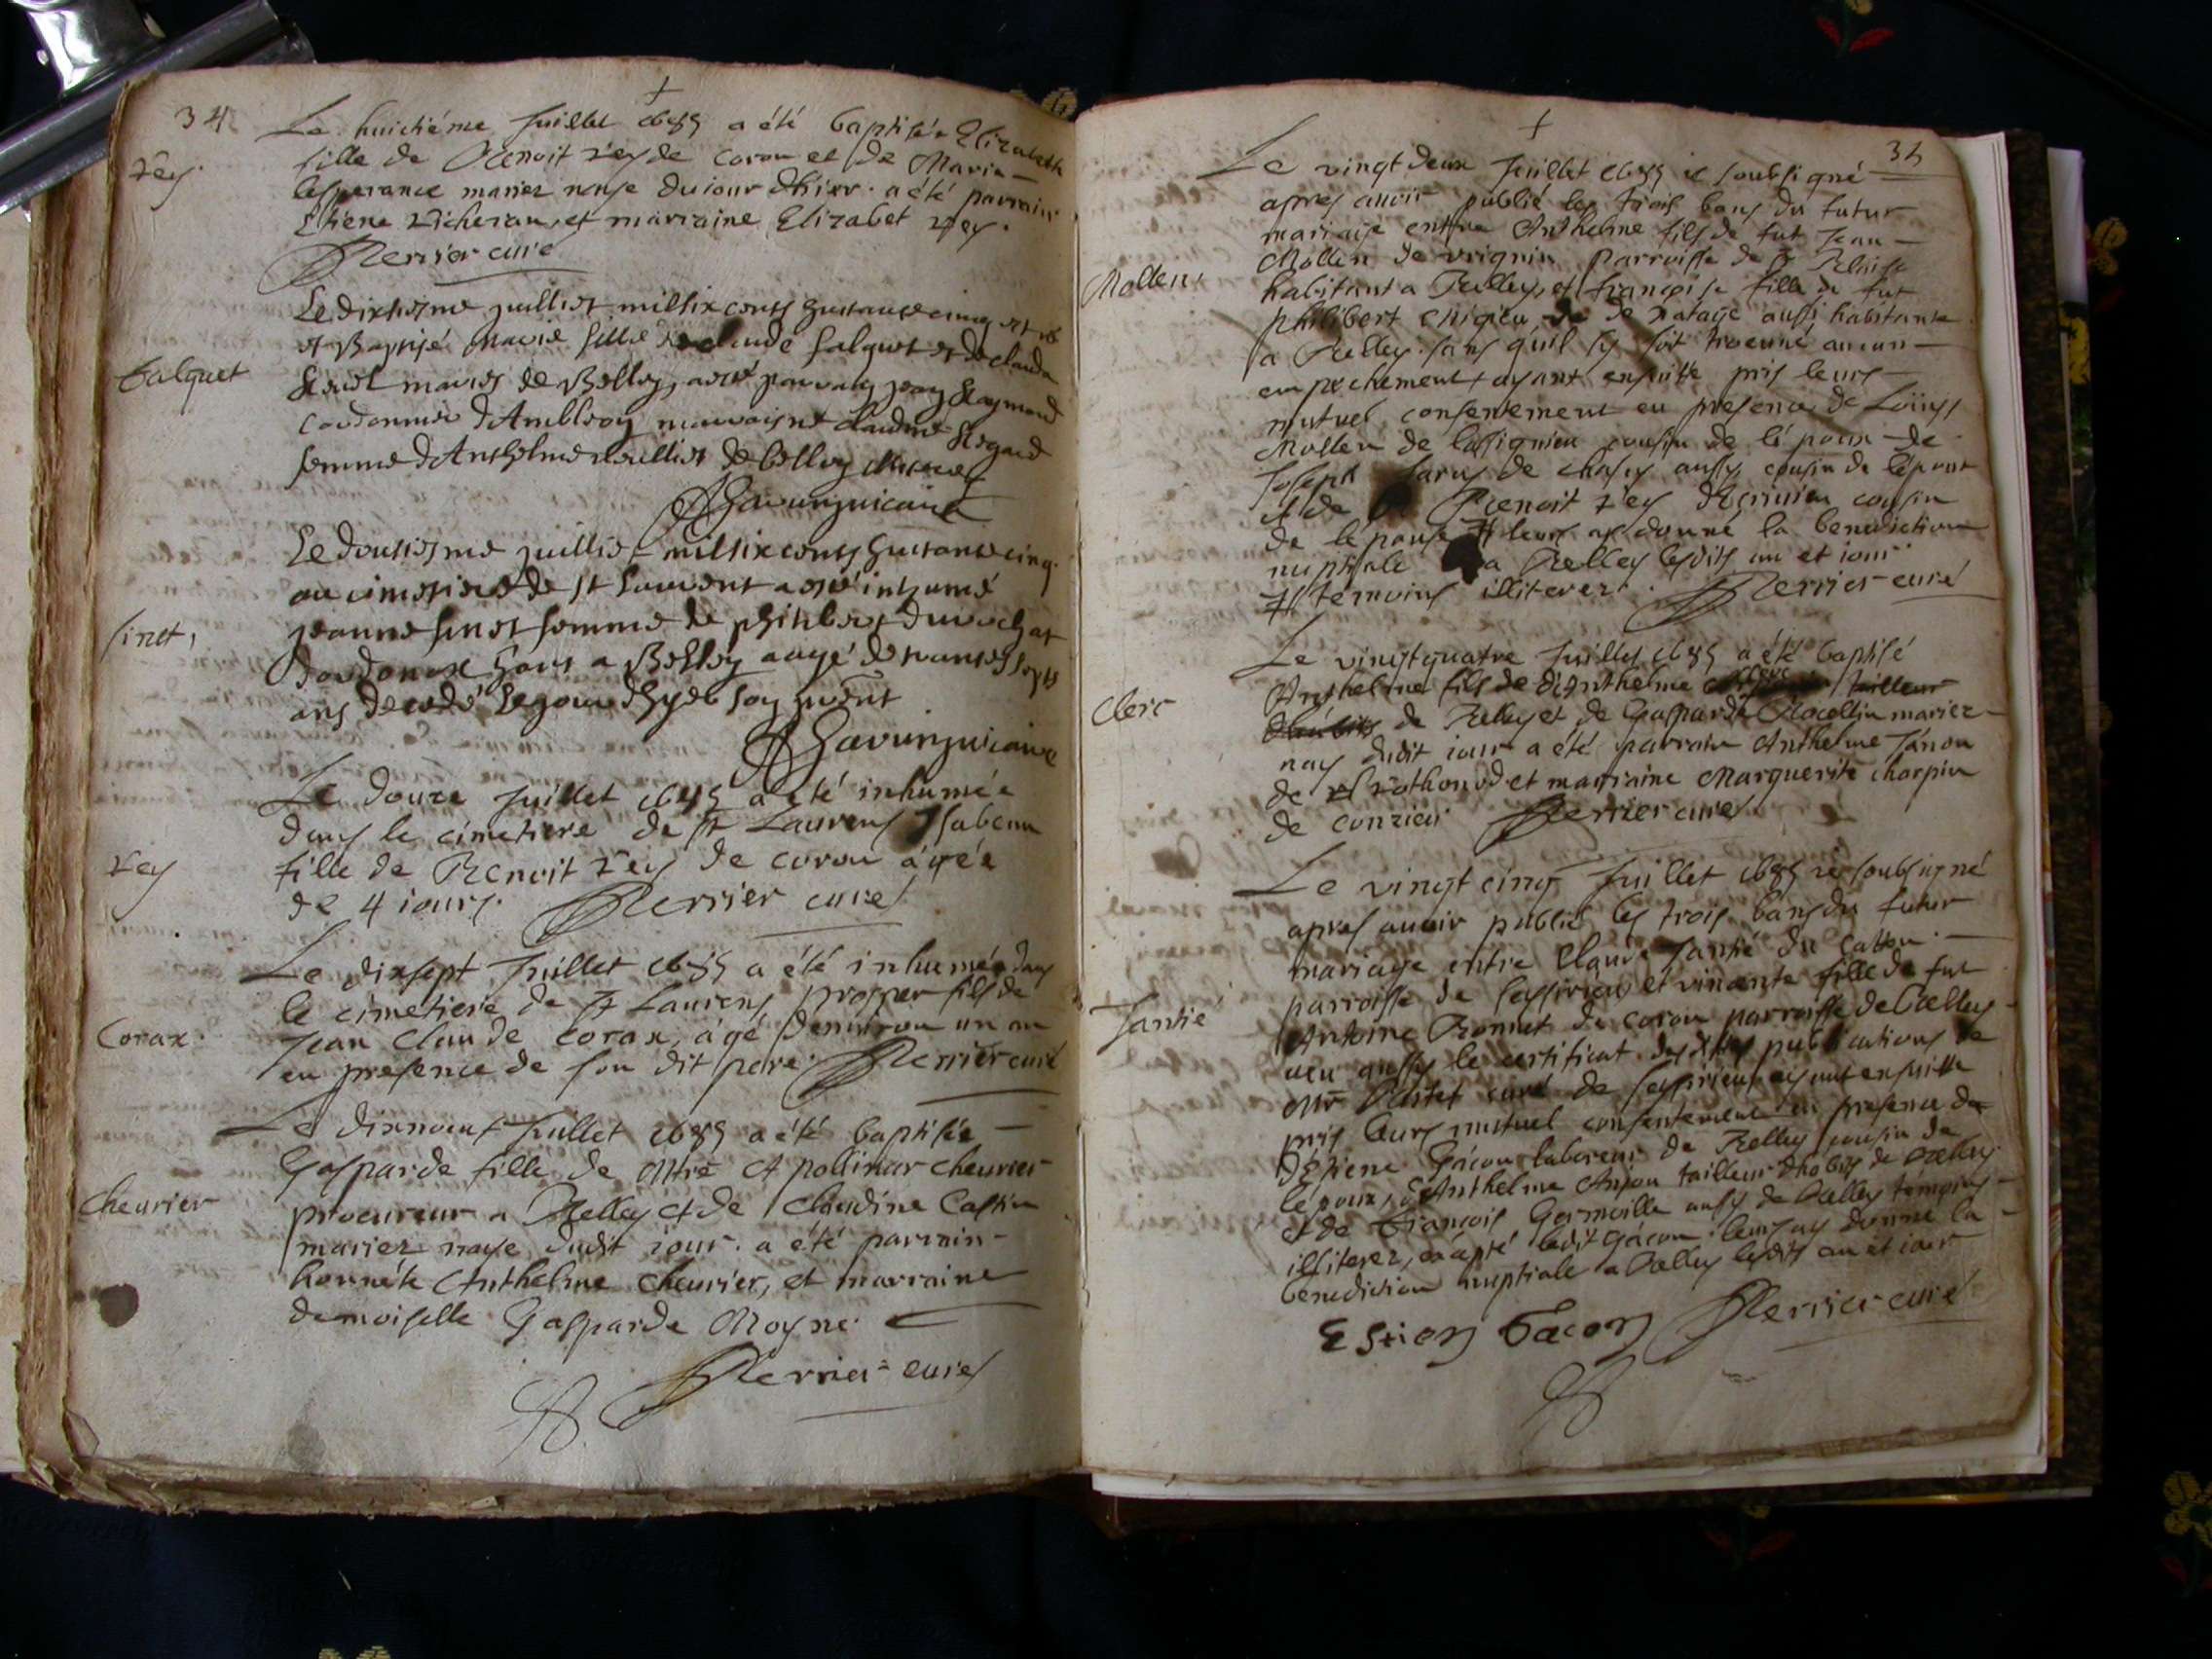 34
+
Le huictiéme Juillet 1685 a été baptisée Elizabeth
Rey.
fille de Benoit Rey de Coron et de Marie
lesperance mariez naye du jour dhier. a été parrain
Etiene Richeran, et marraine Elizabet Rey.
Perrier curé
Le dixhiesme juilliet mil six cents huictante cinq
et Baptisé Marie fille de claude falquet et de clauda
falquet
mariés de Belley, a esté parrain Jean Raymond
Cordonnier d'Ambleon marraisne claudine
femme d'Anthelme de belley
vicaire
Le dousiesme juilliet mil six cents huictante cinq
au cimetiere de St Laurent a esté inhumé
sinet,
Jeanne sinet femme de philibert
a Belley aagé de
ans decedé le jour d'hyer
vicaire
Le douze Juillet 1685 a été inhumée
dans le cimetiere de St Laurens Isabeau
Rey
fille de Benoit Rey de coron âgée
de 4 jours. Perrier curé
Le dixsept Juillet 1685 a été inhumé dans
le cimetiere de St Laurens prosper fils de
Corax.
Jean Claude Corax, âgé denviron un an
en presence de son dit pere. Perrier curé
Le dixneuf Juillet 1685 a été baptisée
Gasparde fille de Mtre Apollinar cheurier
Cheurier
procureur a Belley et de Claudine Castin
mariez naye dudit jour. a été parrain
honnéte Anthelme cheurier, et marraine
demoiselle Gasparde Moyne.
Perrier curé
35
+
Le vingt deux Juillet 1685 ie soubsigné
apres auoir publié les trois bans du futur
mariage entre Anthelme fils de fut Jean
Mollen de vrignin parroisse de St Blaise
Mollen
habitant a Belley, et françoise fille de fut
philibert chigieu de Natage aussi habitante
a Belley. sans quil sy soit trouué aucun
empechement ayant ensuitte pris leurs
mutuel consentement en presence de Loüys
Mollen de lassignieu cousin de lépoux de
Joseph de chasey aussy cousin de lépoux
et de Benoit Rey cousin
de lépouse leurs ay donné la benediction
nuptiale a Belley lesdits an et iour
temoins illiterez. Perrier curé
Le vingtquatre Juillet 1685 a été baptisé
Anthelme fils de d'Anthelme Clerc tailleur
Clerc
de Belley et de Gasparde mariez
nay dudit iour a été parrain Anthelme Janon
de Rothonod et marraine Marguerite chorpin
de conzieu Perrier curé
Le vingt cinq Juillet 1685 ie soubsigné
apres auoir publié les trois bans du futur
mariage entre Claude Jantié du Catton
Jantié
parroisse de et vincente fille de fut
Antoine Bonnet de coron parroisse de belley
ueu aussy le certificat desdites publications de
Mr curé de ayant ensuitte
pris leurs mutuel consentement en presence de
d'Etiene Gâcon laboreur de Belley cousin de
lépoux, d'Anthelme Anjou tailleur dhabits de Belley
et de François Germoille aussy de Belley temoins
illiterez, excepté ledit Gâcon. leurs ay donné la
benediction nuptiale a Belley lesdits an et iour
Estien Gacon Perrier curé